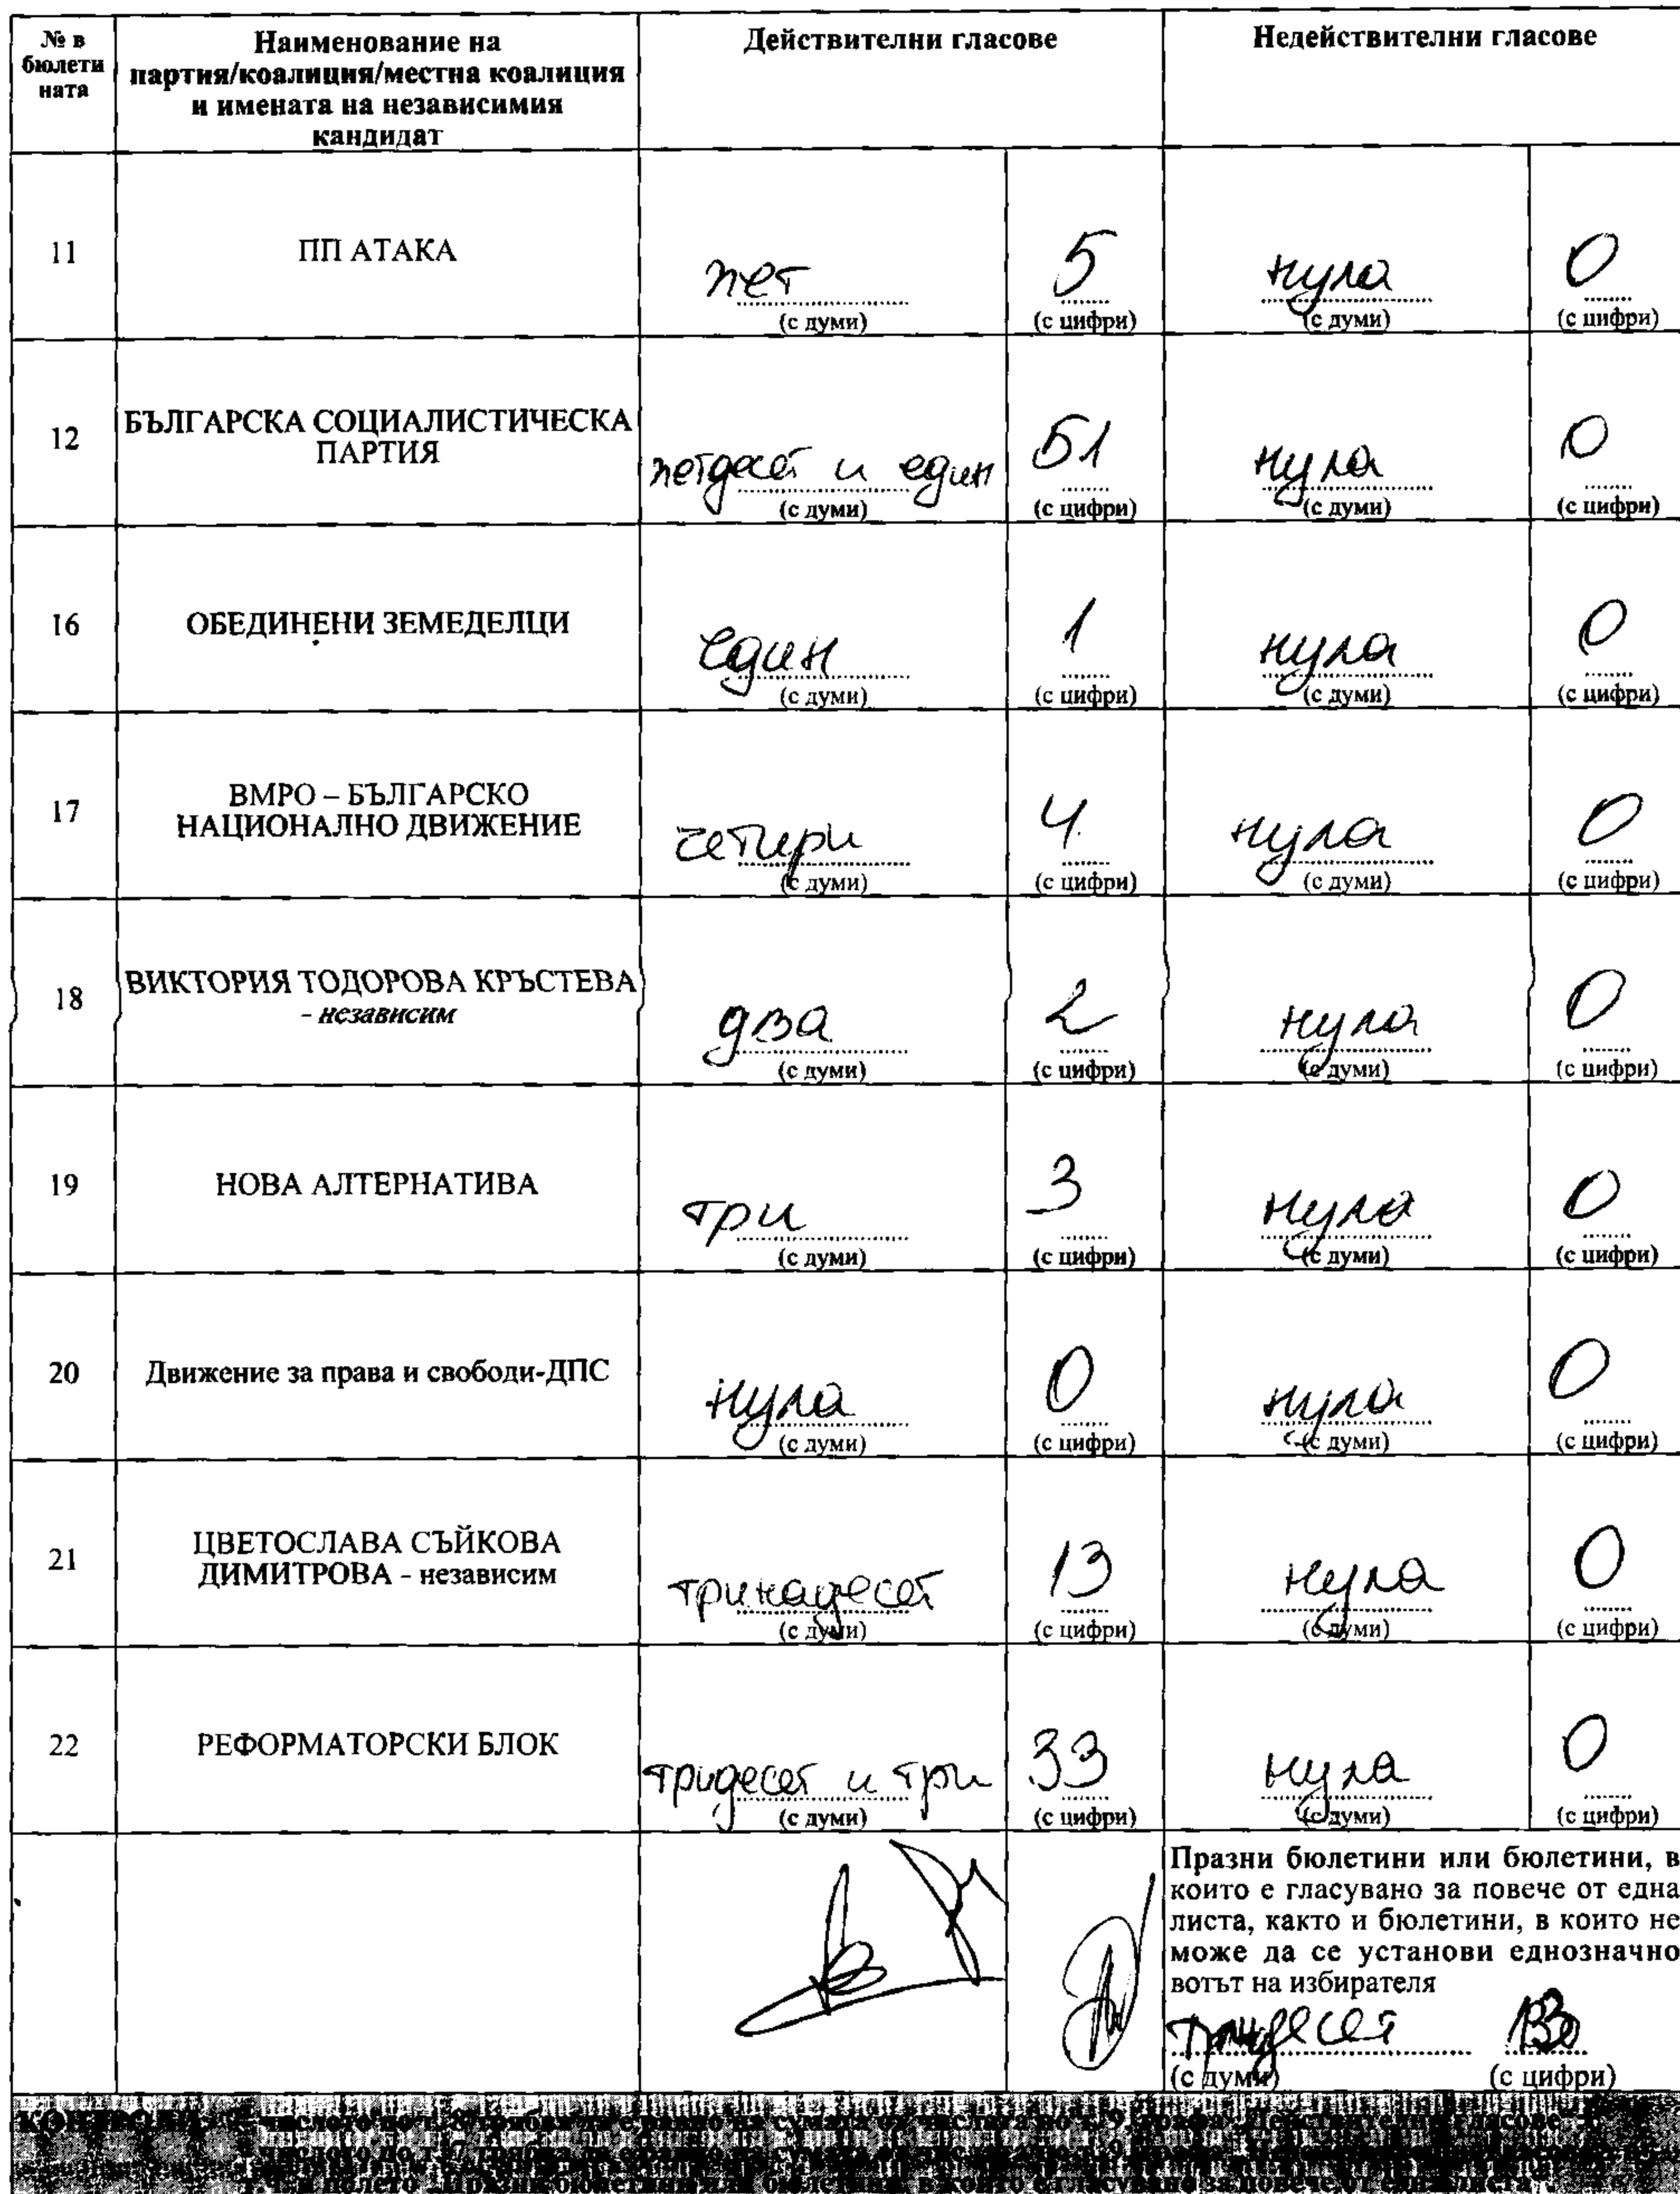 № в бюлети ната
Наименование на партия/коалиция/местна коалиция и имената на независимия кандидат
Действителни гласове
Недействителни гласове
11 ПП АТАКА пет 5 нула 0
(с думи) (с цифри) (с думи) (с цифри)
12 БЪЛГАРСКА СОЦИАЛИСТИЧЕСКА ПАРТИЯ петдесет и един 51 нула 0
(с думи) (с цифри) (с думи) (с цифри)
16 ОБЕДИНЕНИ ЗЕМЕДЕЛЦИ един 1 нула 0
(с думи) (с цифри) (с думи) (с цифри)
17 ВМРО – БЪЛГАРСКО НАЦИОНАЛНО ДВИЖЕНИЕ четири 4 нула 0
(с думи) (с цифри) (с думи) (с цифри)
18 ВИКТОРИЯ ТОДОРОВА КРЪСТЕВА - независим два 2 нула 0
(с думи) (с цифри) (с думи) (с цифри)
19 НОВА АЛТЕРНАТИВА три 3 нула 0
(с думи) (с цифри) (с думи) (с цифри)
20 Движение за права и свободи-ДПС нула 0 нула 0
(с думи) (с цифри) (с думи) (с цифри)
21 ЦВЕТОСЛАВА СЪЙКОВА ДИМИТРОВА - независим тринадесет 13 нула 0
(с думи) (с цифри) (с думи) (с цифри)
22 РЕФОРМАТОРСКИ БЛОК тридесет и три 33 нула 0
(с думи) (с цифри) (с думи) (с цифри)
Празни бюлетини или бюлетини, в
които е гласувано за повече от една
листа, както и бюлетини, в които не
може да се установи еднозначно
вотът на избирателя
тридесет
(с думи) (с цифри)